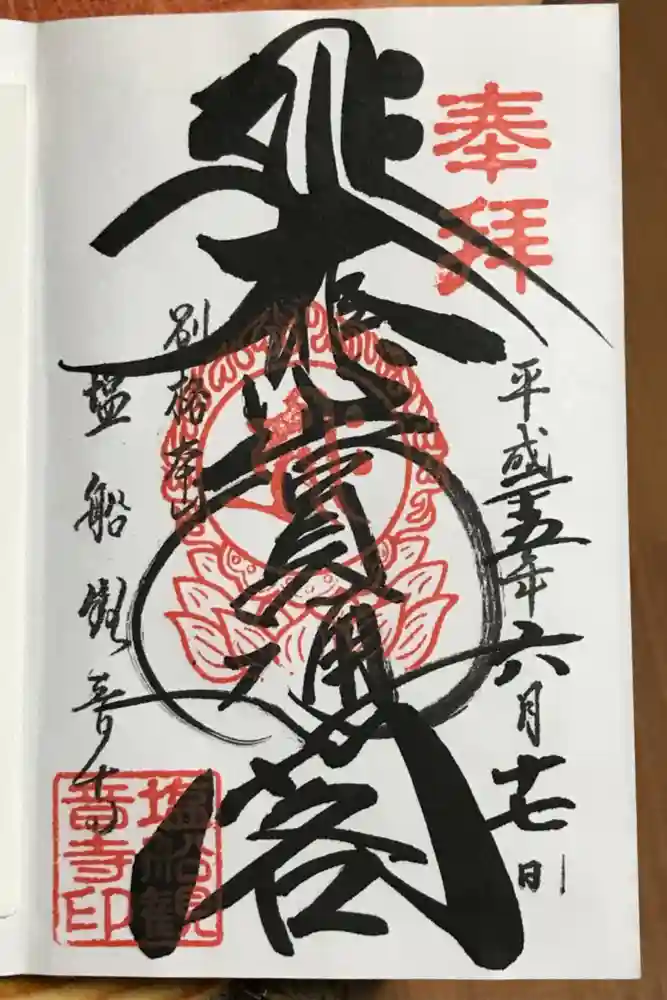 奉拝
平成二十五年六月十七日
大悲圓通閣
別格本山
塩船観音寺
塩船観
音寺印